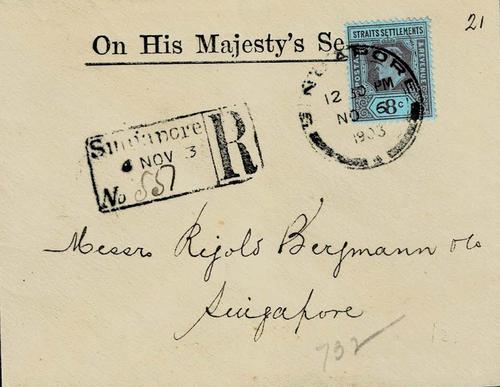 21
On His Majesty's Se
STRAITS SETTLEMENTS
POSTAGE & REVENUE
8c
SINGAPORE
12 30 PM
NO
1903
Singapore
NOV 3
R
No 557
Messrs Rigold Bergmann & Co
Singapore
732